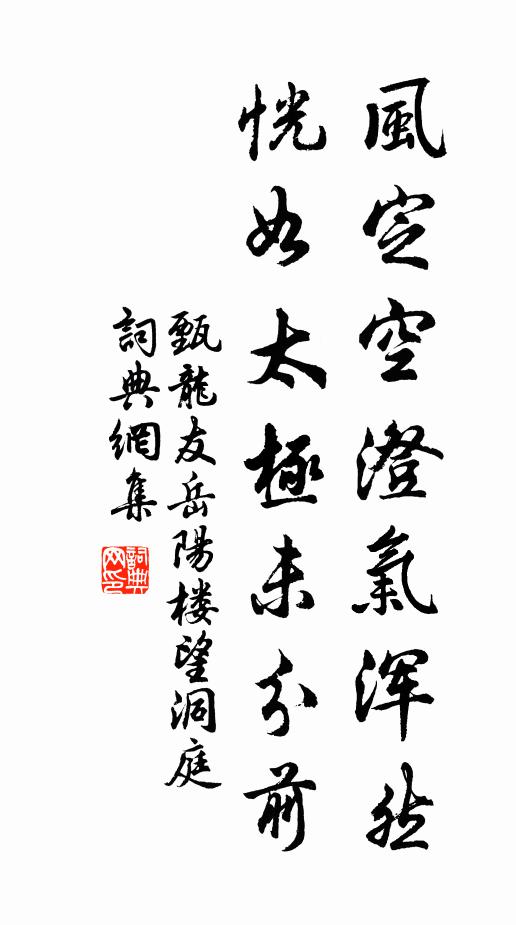 風定空澄氣渾然
恍如太極未分前
甄龍友岳陽楼望洞庭
詞典網集
詞典网印